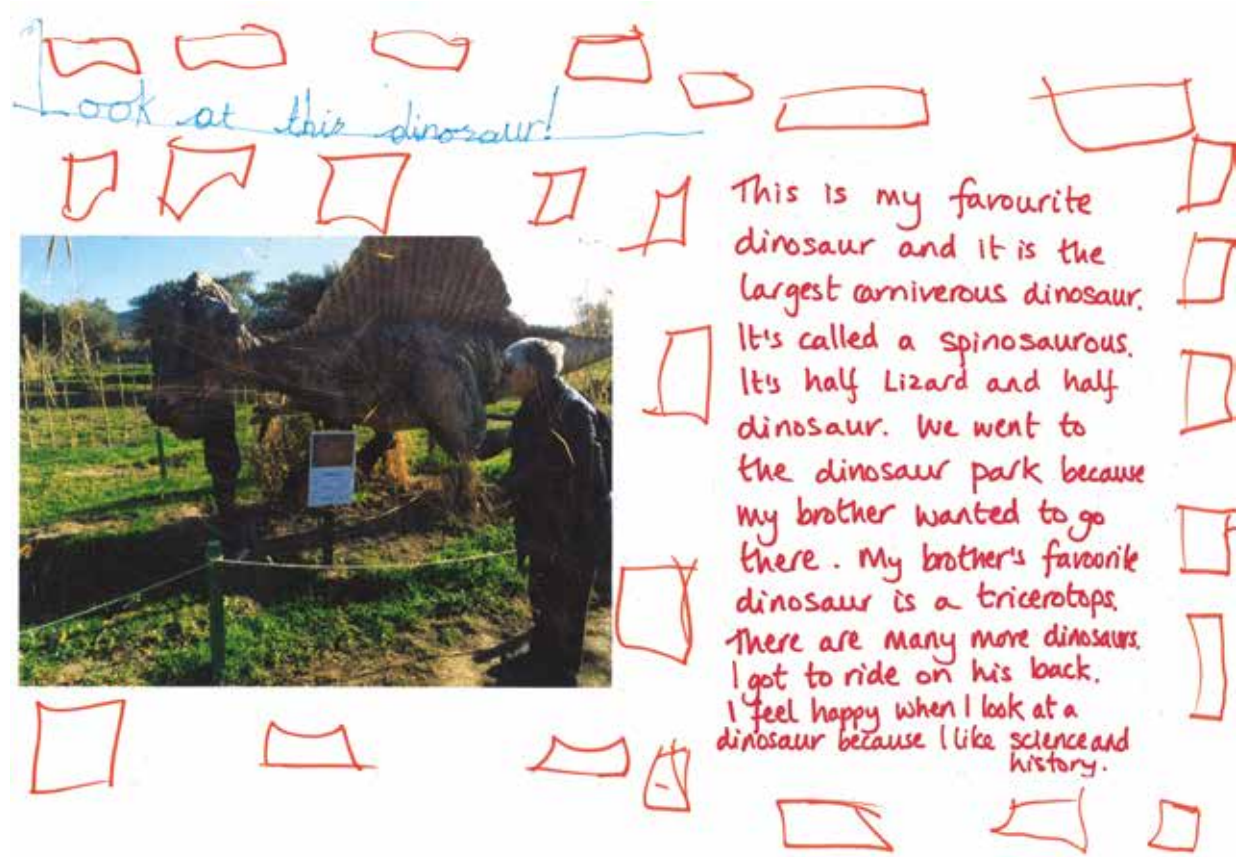 Look at this dinosaur!
This is my favourite
dinosaur and it is the
largest carniverous dinosaur.
It's called a spinosaurous.
It's half Lizard and half
dinosaur. We went to
the dinosaur park because
my brother wanted to go
there. My brother's favoorite
dinosaur is a tricerotops.
There are many more dinosaurs.
I got to ride on his back.
I feel happy when I look at a
dinosaur because I like science and
history.